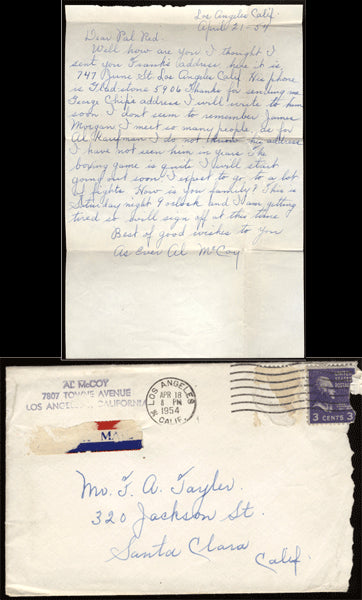 Los Angeles Calif.
April 21-54
Dear Pal Red.
Well how are you I thought I
sent you Franks address here it is
747 June St. Los Angeles Calif His phone
is Gladstone 5906 Thanks for sending me
George Chips address I will write to him
soon I dont seem to remember James
Morgan I meet so many people, as for
Al I do not know his address
I have not seen him in years. The
boxing game is quite I will start
going out soon I expect to go to a lot
of fights. How is you family? This is
Saturday night 9 oclock and I am getting
tired so will sign off at this time
Best of good wishes to you
As Ever Al McCoy
AL McCOY
7807 TOWNE AVENUE
LOS ANGELES, CALIFORNIA
LOS ANGELES
APR 18
8 PM
1954
CALIF.
3 CENTS 3
Mr. F. A. Tayler.
320 Jackson St.
Santa Clara
Calif.